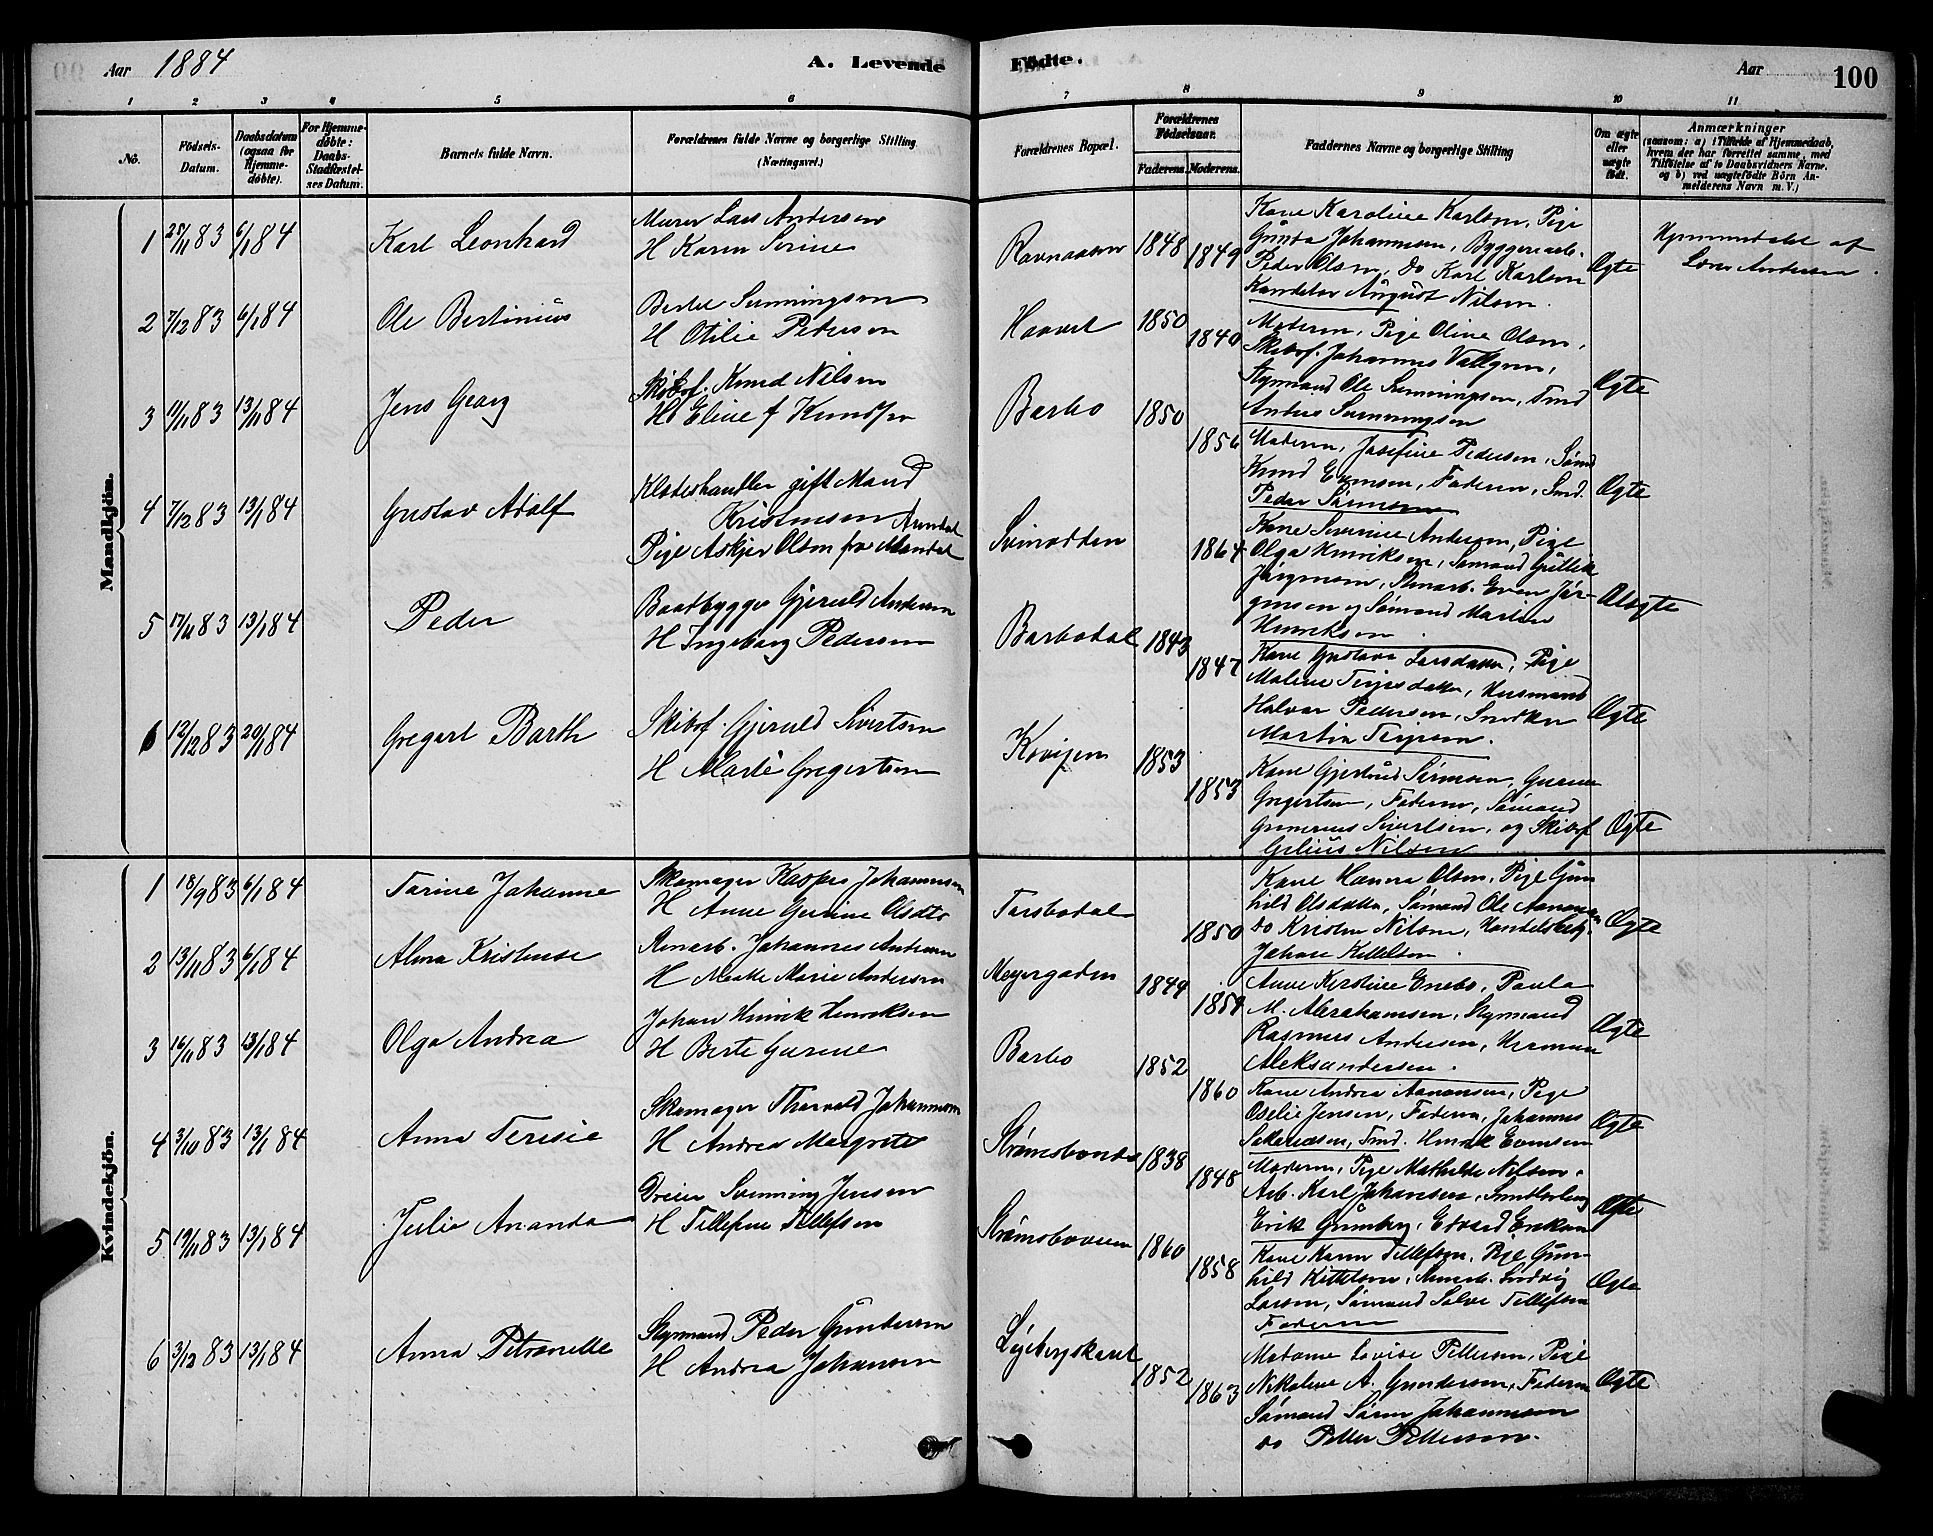 Aar 1884
A. Levende Fødte.
Aar 100
1 2 3 4 5 6 7 8 9 10 11
No.
Fødsels-Datum.
Daabsdatum (ogsaa for Hjemme-døbte).
For Hjemme-døbte: Daabs-Stadfæstel-ses Datum.
Barnets fulde Navn.
Forældrenes fulde Navne og borgerlige Stilling (Næringsvei.)
Forældrenes Bopæl.
Forældrenes Fødselsaar.
Faderens. Moderens.
Faddernes Navne og borgerlige Stilling
Om ægte eller uægte født.
Anmærkninger
(saasom: a) i Tilfælde af Hjemmedaab, hvem der har forrettet samme, med Tilføielse af to Daabsvidners Navne, og b) ved uægtefødte Børn An-melderens Navn m. V.)
Mandkjøn.
1 25/11 83 6/1 84 Karl Leonhard
Murer Lars Andersen
H Karen Serine
Ravnaasen 1848 1849
Kone Karoline Karlsen, Pige
Gunda Johannesen, Byggeriarb.
Peder Olsen, do Karl Karlsen
Kandelor August Nilsen.
Ægte
Hjemmedøbt af
Lars Andersen.
2 7/12 83 6/1 84 Ole Bertinius
Bertel Sunningsen
H Otilie Pedersen
Haavet 1850 1840
Moderen, Pige Oline Olsen,
Skibsf. Johannes Vallgren,
Styrmand Ole Sunningsen, Tmd
Anders Sunningsen
Ægte
3 11/11 83 13/1 84 Jens Georg
Skibsf. Knud Nilsen
H Eline f Knudsen
Barbo 1850 1856
Moderen, Josefine Pedersen, Sømd
Knud Evensen, Faderen, Smd.
Peder Sørensen
Ægte
4 7/12 83 13/1 84 Gustav Adolf
Kloteshandler gift Mand
Kristensen Arendal
Pige Askjer Olsen fra Mandal
Svinodden 1864
Kone Severine Andersen, Pige
Olga Henriksen, Sømand Gullik
Jørgensen, Stenarb. Even Jør-
gensen og Sømand Martin
Henriksen.
Uægte
5 17/11 83 13/1 84 Peder
Baadbygger Gjeruld Andersen
H Ingeborg Pedersen
Barbodal 1843 1847
Kone Gustava Larsdatter, Pige
Malene Terjesdatter, Husmand
Halvor Pedersen, Snedker
Martin Terjesen.
Ægte
6 12/12 83 20/1 84 Gregert Barth
Skibsf. Gjeruld Sivertsen
H Marie Gregertsen
Kovigen 1853 1853
Kone Gjertrud Sørensen, Gurine
Gregertsen, Faderen, Sømand
Gunerius Sivertsen, og Skibsf
Gelius Nilsen
Ægte
Kvindekjøn.
1 18/9 83 6/1 84 Tarine Johanne
Skomager Kasper Johannesen
H Anne Gurine Olsdtr
Torsbodal 1850
Kone Hanna Olsen, Pige Gun
hild Olsdatter, Sømand Ole Aanonsen
do Kristen Nilsen, Handelsbetj.
Johan Kittelsen.
Ægte
2 13/11 83 6/1 84 Alma Kristense
Renarb. Johannes Andersen
H Marthe Marie Andersen
Meyergaden 1844 1859
Anne Kirstine Enebo, Paula
M. Abrahamsen, Styrmand
Rasmus Andersen, Herman
Aleksandersen.
Ægte
3 16/11 83 13/1 84 Olga Andrea
Johan Henrik Henriksen
H Berte Gurine
Barbo 1852 1860
Kone Andrea Aanonsen, Pige
Oselie Jensen, Faderen, Johannes
Sakariasen, Tmd. Henrik Evensen
Ægte
4 3/10 83 13/1 84 Anna Teresie
Skomager Thorvald Johannesen
H Andrea Margrete
Strømsbunde 1838 1848
Moderen, Pige Mathilde Nilsen.
Arb. Karl Johansen, Smedlærling
Erik Grønberg, Edvard Eriksen
Ægte
5 19/11 83 13/1 84 Julie Ananda
Dreier Svenning Jensen
H Tillefine Tellefsen
Strømsbo­veien 1860 1858
Kone Karen Tellefsen, Pige Gun-
hild Kittelsen, Stenarb. Ludvig
Larsen, Sømand Salve Tellefsen
Faderen
Ægte
6 3/12 83 13/1 84 Anna Petronelle
Styrmand Peder Gundersen
H Andrea Johansen
Løjebergskaret 1852 1863
Madame Lovise Pettersen, Pige
Nikoline A. Gundersen, Faderen
Sømand Søren Johannesen
do Petter Pettersen.
Ægte